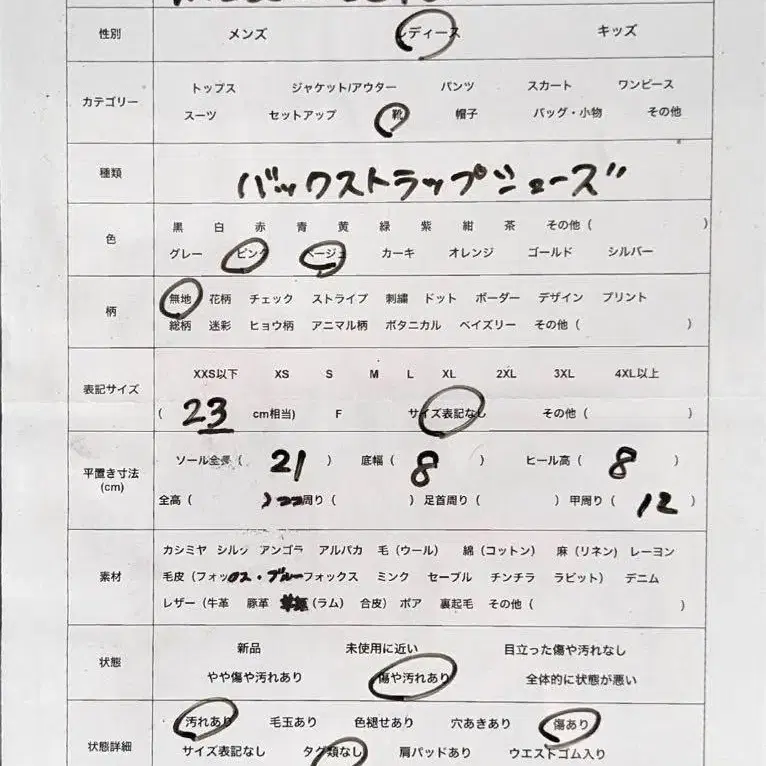 性別 メンズ レディース キッズ
カテゴリー
トップス ジャケット/アウター パンツ スカート ワンピース
スーツ セットアップ 靴 帽子 バッグ・小物 その他
種類 バックストラップシューズ
色
黒 白 赤 青 黄 緑 紫 紺 茶 その他 ( )
グレー ピンク ベージュ カーキ オレンジ ゴールド シルバー
柄
無地 花柄 チェック ストライプ 刺繍 ドット ボーダー デザイン プリント
総柄 迷彩 ヒョウ柄 アニマル柄 ボタニカル ペイズリー その他 ( )
表記サイズ
XXS以下 XS S M L XL 2XL 3XL 4XL以上
( 23 cm相当) F サイズ表記なし その他 ( )
平置き寸法
(cm)
ソール全長 ( 21 ) 底幅 ( 8 ) ヒール高 ( 8 )
全高 ( ) 周り ( ) 足首周り ( ) 甲周り ( 12 )
素材
カシミヤ シルク アンゴラ アルパカ 毛 (ウール) 綿 (コットン) 麻 (リネン) レーヨン
毛皮 (フォックス・ブルーフォックス ミンク セーブル チンチラ ラビット) デニム
レザー (牛革 豚革 (ラム) 合皮) ボア 裏起毛 その他 ( )
状態
新品 未使用に近い 目立った傷や汚れなし
やや傷や汚れあり 傷や汚れあり 全体的に状態が悪い
状態詳細
汚れあり 毛玉あり 色褪せあり 穴あきあり 傷あり
サイズ表記なし タグ類なし 肩パッドあり ウエストゴム入り